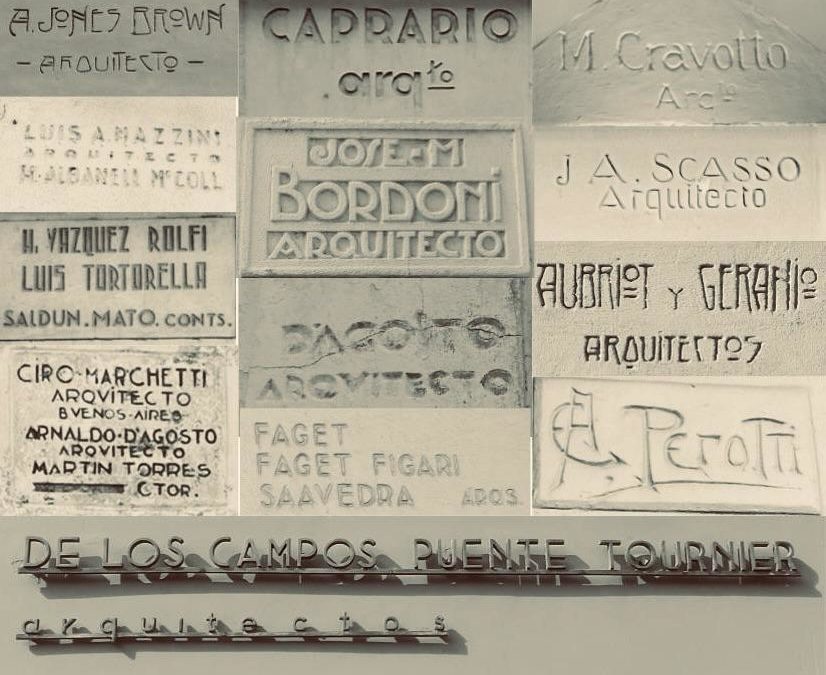 A. JONES BROWN
- ARQUITECTO -
CAPRARIO
arqto
M. Cravotto
Arqto
LUIS A. MAZZINI
ARQUITECTO
M. ALBANELL McCOLL
JOSE-M
BORDONI
ARQUITECTO
J A. SCASSO
Arquitecto
H. VAZQUEZ ROLFI
LUIS TORTORELLA
SALDUN. MATO. CONTS.
AUBRIOT Y GERANIO
ARQUITECTOS
D'AGOSTO
ARQVITECTO
CIRO·MARCHETTI
ARQVITECTO
BVENOS·AIRES
ARNALDO·D'AGOSTO
ARQVITECTO
MARTIN TORRES
CTOR.
FAGET
FAGET FIGARI
SAAVEDRA ARQS.
A. Perotti
DE LOS CAMPOS PUENTE TOURNIER
arquitectos